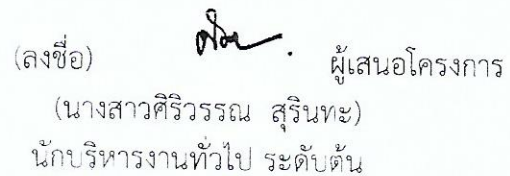 (ลงชื่อ) ผู้เสนอโครงการ
(นางสาวศิริวรรณ สุรินทะ)
นักบริหารงานทั่วไป ระดับต้น